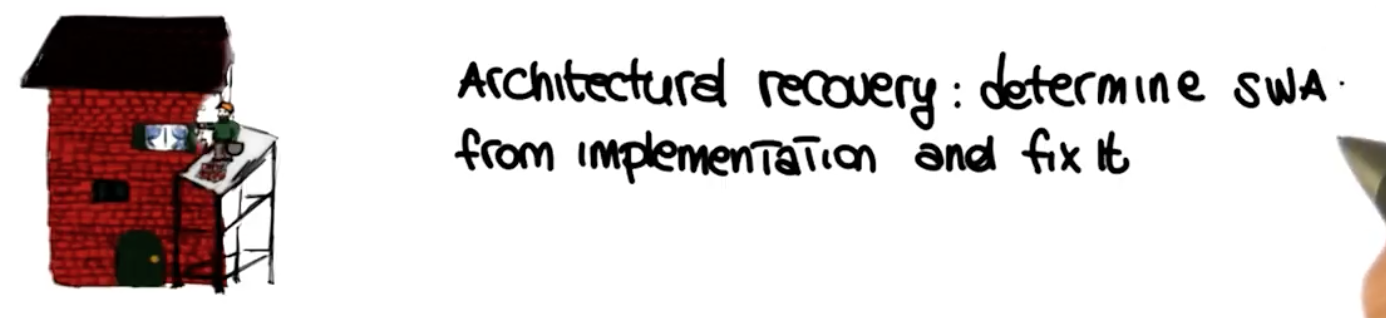 Architectural recovery: determine SWA
from implementation and fix it